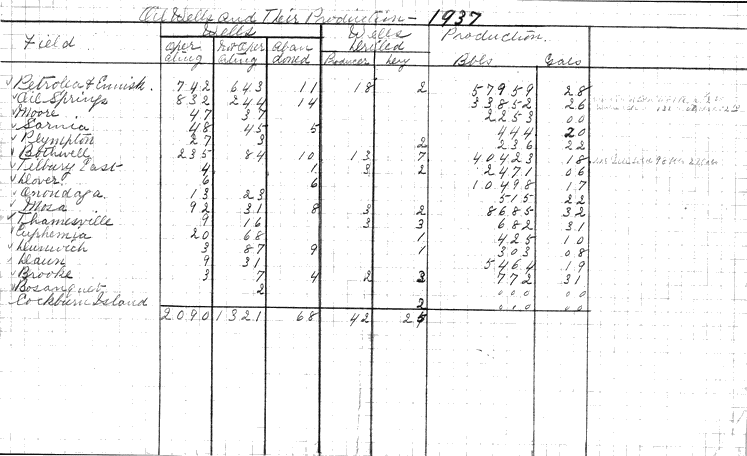 Oil Wells and Their Production - 1937
Wells Wells Drilled Production.
Field Oper ating Not Oper ating Aban doned Producer Dry Bbls Gals
Petrolia & Ennisk. 742 643 11 18 2 57959 28
Oil Springs 832 244 14 33852 26
Moore 47 37 2253 00
Sarnia 48 45 5 444 20
Plympton 27 3 2 236 22
Bothwell 235 84 10 13 7 40423 18
Tilbury East 4 1 3 2 2471 06
Dover. 6 6 10498 17
Onondaga. 13 23 515 22
Mosa 92 31 8 3 2 8685 32
Thamesville 9 16 3 3 682 31
Euphemia 20 68 1 425 10
Dunwich 3 87 9 1 303 08
Dawn 9 31 5464 19
Brooke 3 7 4 2 3 772 31
Bosanquet 2 000 00
Cockburn Island 2 010 00
2090 1321 68 42 25